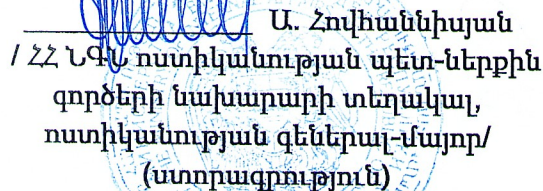 Ա. Հովհաննիսյան
/ ՀՀ ՆԳՆ ոստիկանության պետ-ներքին
գործերի նախարարի տեղակալ,
ոստիկանության գեներալ-մայոր/
(ստորագրություն)